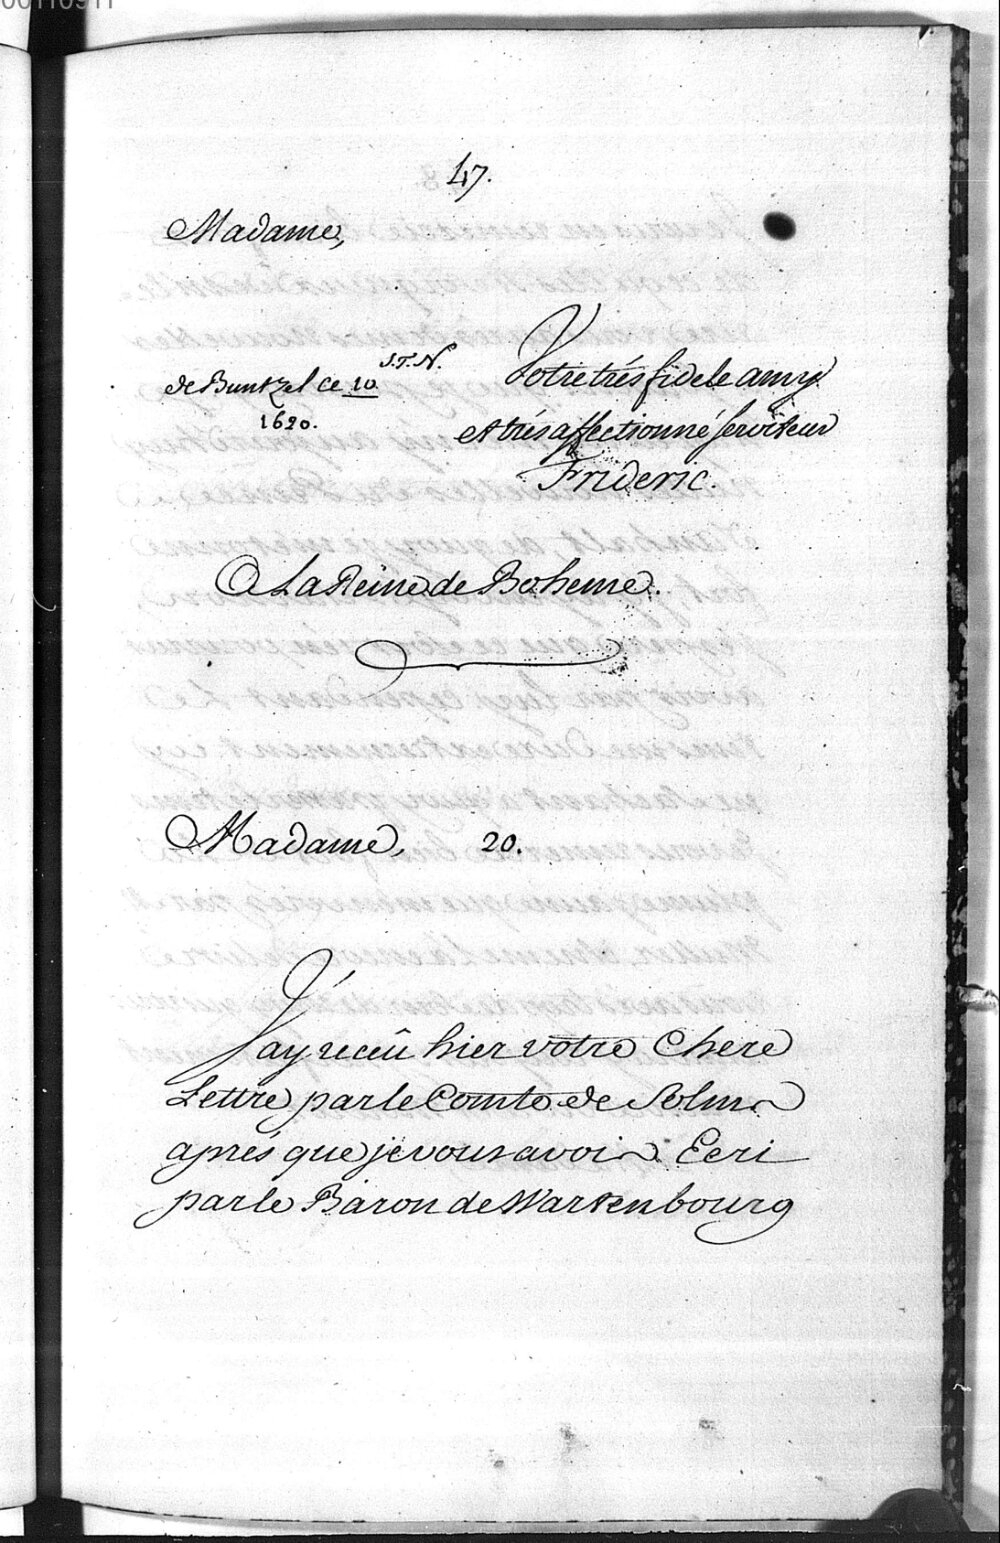 00110911
47.
Madame,
Votre trés fidele amy
de Buntzel ce 10 S.T.N.
1620.
et trés affectionné serviteur
Frideric.
A La Reine de Boheme.
Madame, 20.
J'ay receû hier votre Chere
Lettre par le Comte de Solms
aprés que je vous avois Ecri
par le Baron de Wartenbourg